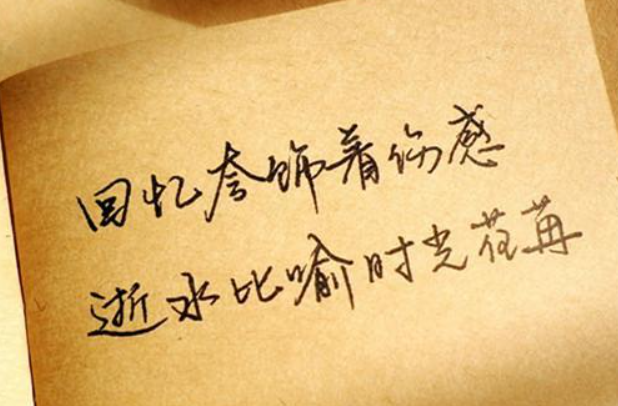 回忆夸饰着伤感
逝水比喻时光荏苒